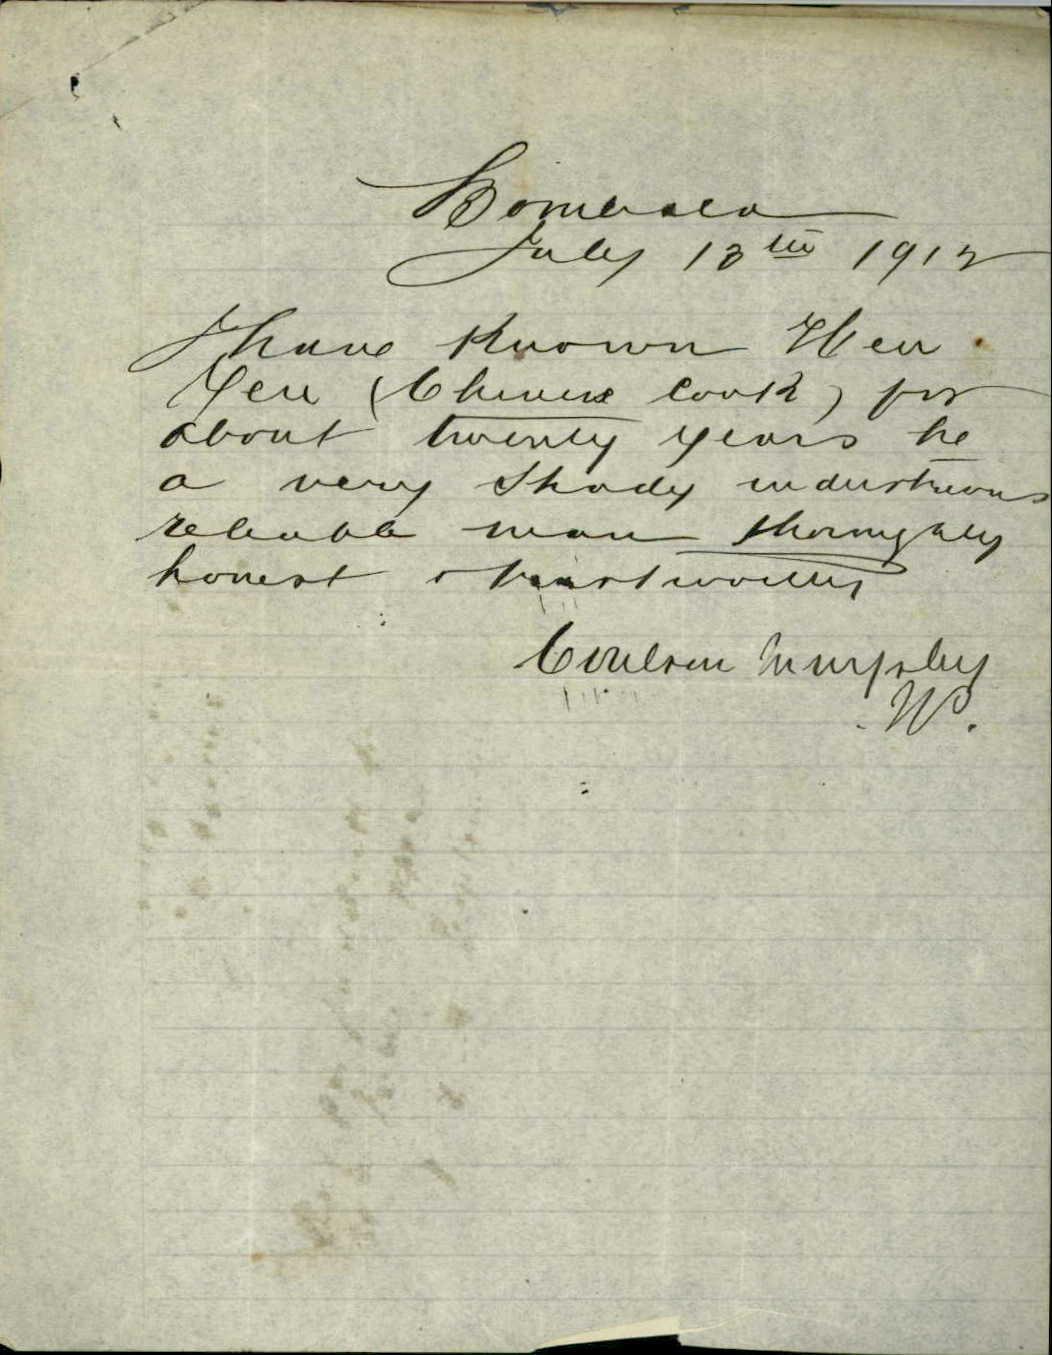 Bombala
July 13th 1912
I have Known Hen
Yen (Chinese Cook) for
about twenty years he
a very Steady industrious
reliable man thoroughly
honest & trustworthy
Coulson Murpshy